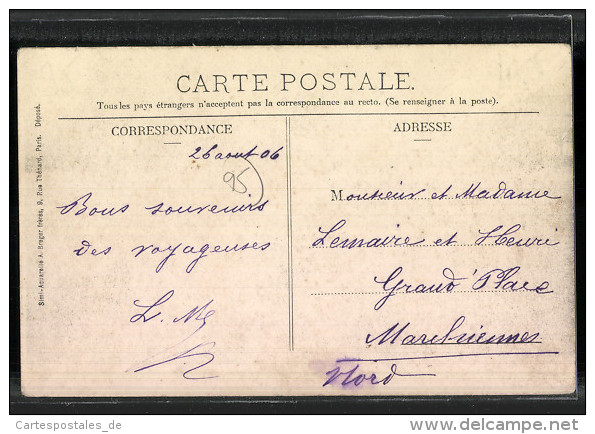 CARTE POSTALE.
Tous les pays étrangers n'acceptent pas la correspondance au recto. (Se renseigner à la poste).
CORRESPONDANCE
ADRESSE
26 aout 06
95
Bons souvenirs
des voyageuses
L. M
Monsieur et Madame
Lemaire et Henri
Grand'Place
Marchiennes
Nord
Simi-Aquarelle A. Breger frères, 9, Rue Thénard, Paris. Déposé.
Cartespostales_de
www.delcampe.net